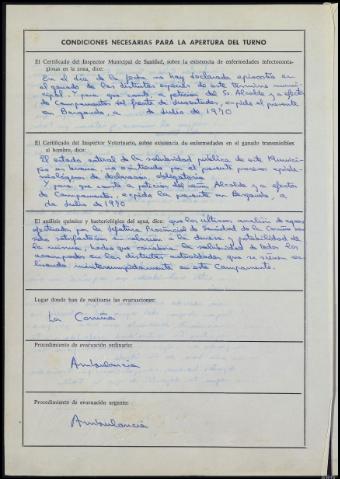 CONDICIONES NECESARIAS PARA LA APERTURA DEL TURNO
El Certificado del Inspector Municipal de Sanidad, sobre la existencia de enfermedades infectoconta-
giosas en la zona, dice:
En el día de la fecha no hay declarada epizootia en
el ganado de las distintas especies de este término muni-
cipal. Y para que conste a petición del S. Alcalde y a efectos
de Campamentos del Frente de Juventudes, expido el presente
en Bergondo, a de Julio de 1970
El Certificado del Inspector Veterinario, sobre existencia de enfermedades en el ganado transmisibles
al hombre, dice:
El estado actual de la salubridad pública de este Munici-
pio es buena, no existiendo por el presente proceso epide-
miológico de declaración obligatoria
Y para que conste a petición del señor Alcalde y a efectos
de Campamento, expido la presente en Bergondo, a
de Julio de 1970
El análisis químico y bacteriológico del agua, dice: que los últimos análisis de aguas
efectuados por la Jefatura Provincial de Sanidad de La Coruña han
sido satisfactorios en relación a la dureza y potabilidad de
la misma, hecho que corrobora la salubridad de todos los
acampados en las distintas actividades que se vienen rea-
lizando ininterrumpidamente en este Campamento.
Lugar donde han de realizarse las evacuaciones:
La Coruña
Procedimiento de evacuación ordinario:
Ambulancia
Procedimiento de evacuación urgente:
Ambulancia